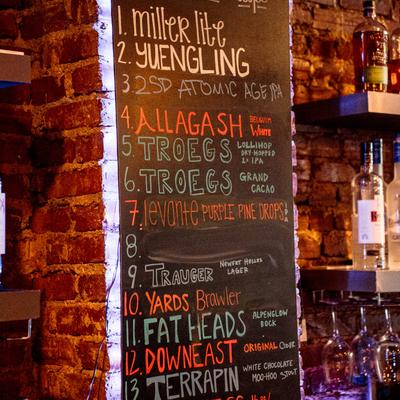 1. miller lite
2. YUENGLING
3. 2SD ATOMIC AGE IPA
4. ALLAGASH BELGIUM WHITE
5. TROEGS LOLLIHOP DRY-HOPPED 2x IPA
6. TROEGS GRAND CACAO
7. levante PURPLE PINE DROPS
8.
9. TRAUGER NEWERT HOLLES LAGER
10. YARDS Brawler
11. FAT HEADS ALPENGLOW BOCK
12. DOWNEAST ORIGINAL CIDER
13. TERRAPIN WHITE CHOCOLATE MOO-HOO STOUT